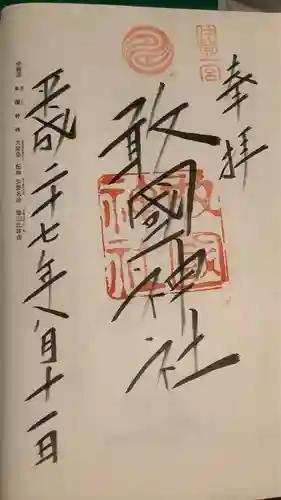 奉拝
伊賀一宮
敢國神社
敢國神社
平成二十七年八月十一日